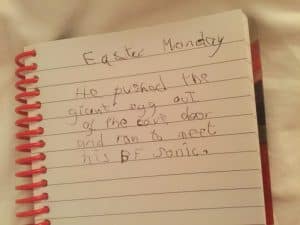 Easter Monday
He pushed the
giant egg out
of the cave door
and ran to meet
his BF Sonic.